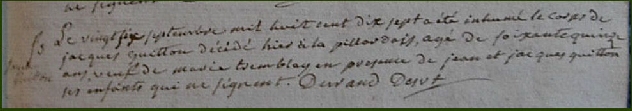 ne signent
Le vingt six septembre mil huit cent dix sept a été inhumé le corps de
jacques guitton décédé hier à la pillardais, agé de soixante quinze
ans, veuf de marie tremblay en presence de jean et jacques guitton
ses enfants qui ne signent. Durand Desvt